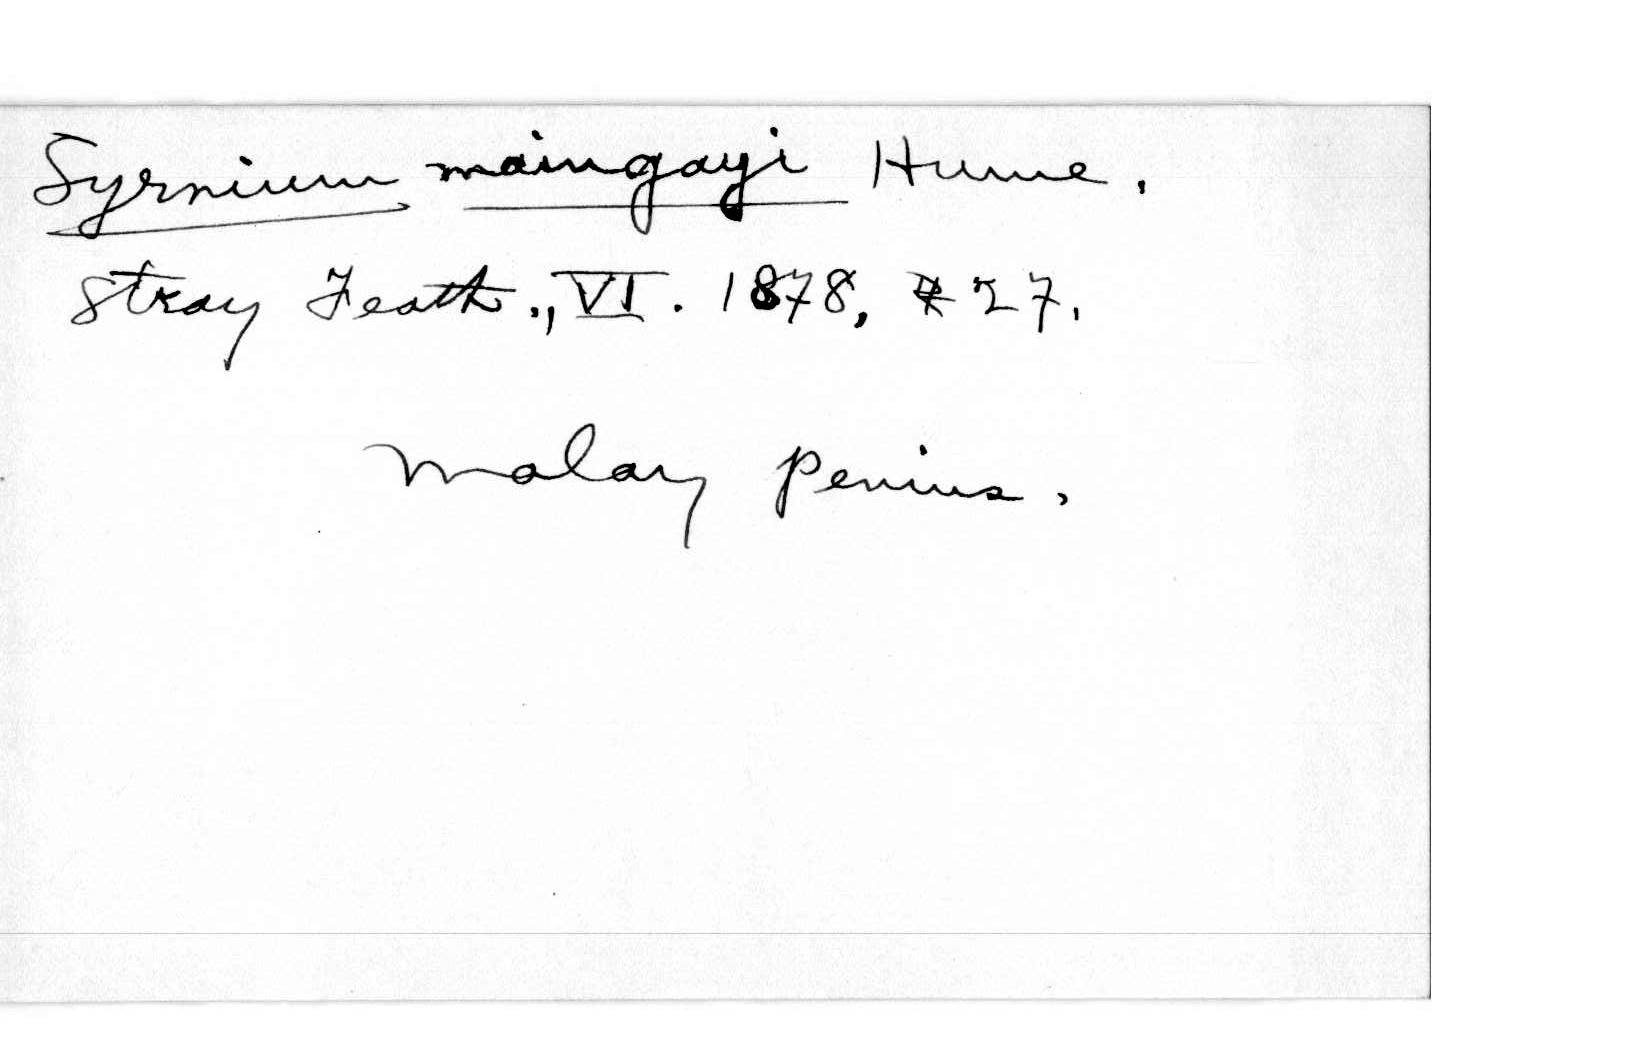 Syrnium maingayi Hume.
Stray Feath., VI. 1878, 27.
Malay Penins.